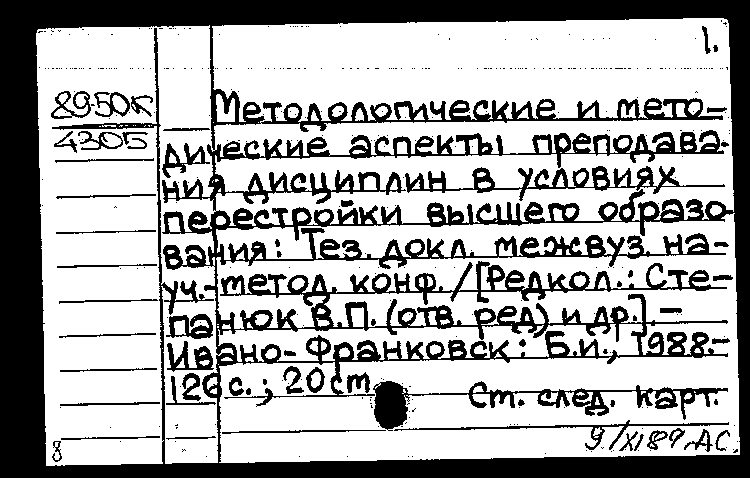 1.
89-50к Методологические и мето-
4305 дические аспекты преподава-
ния дисциплин в условиях
перестройки высшего образо-
вания: Тез. докл. межвуз. на-
уч.-метод. конф. / [Редкол.: Сте-
панюк В.П. (отв. ред) и др.].-
Ивано-Франковск: Б.и., 1988.-
126 с.; 20 cm
Ст. след. карт.
9/XI89. АС.
8